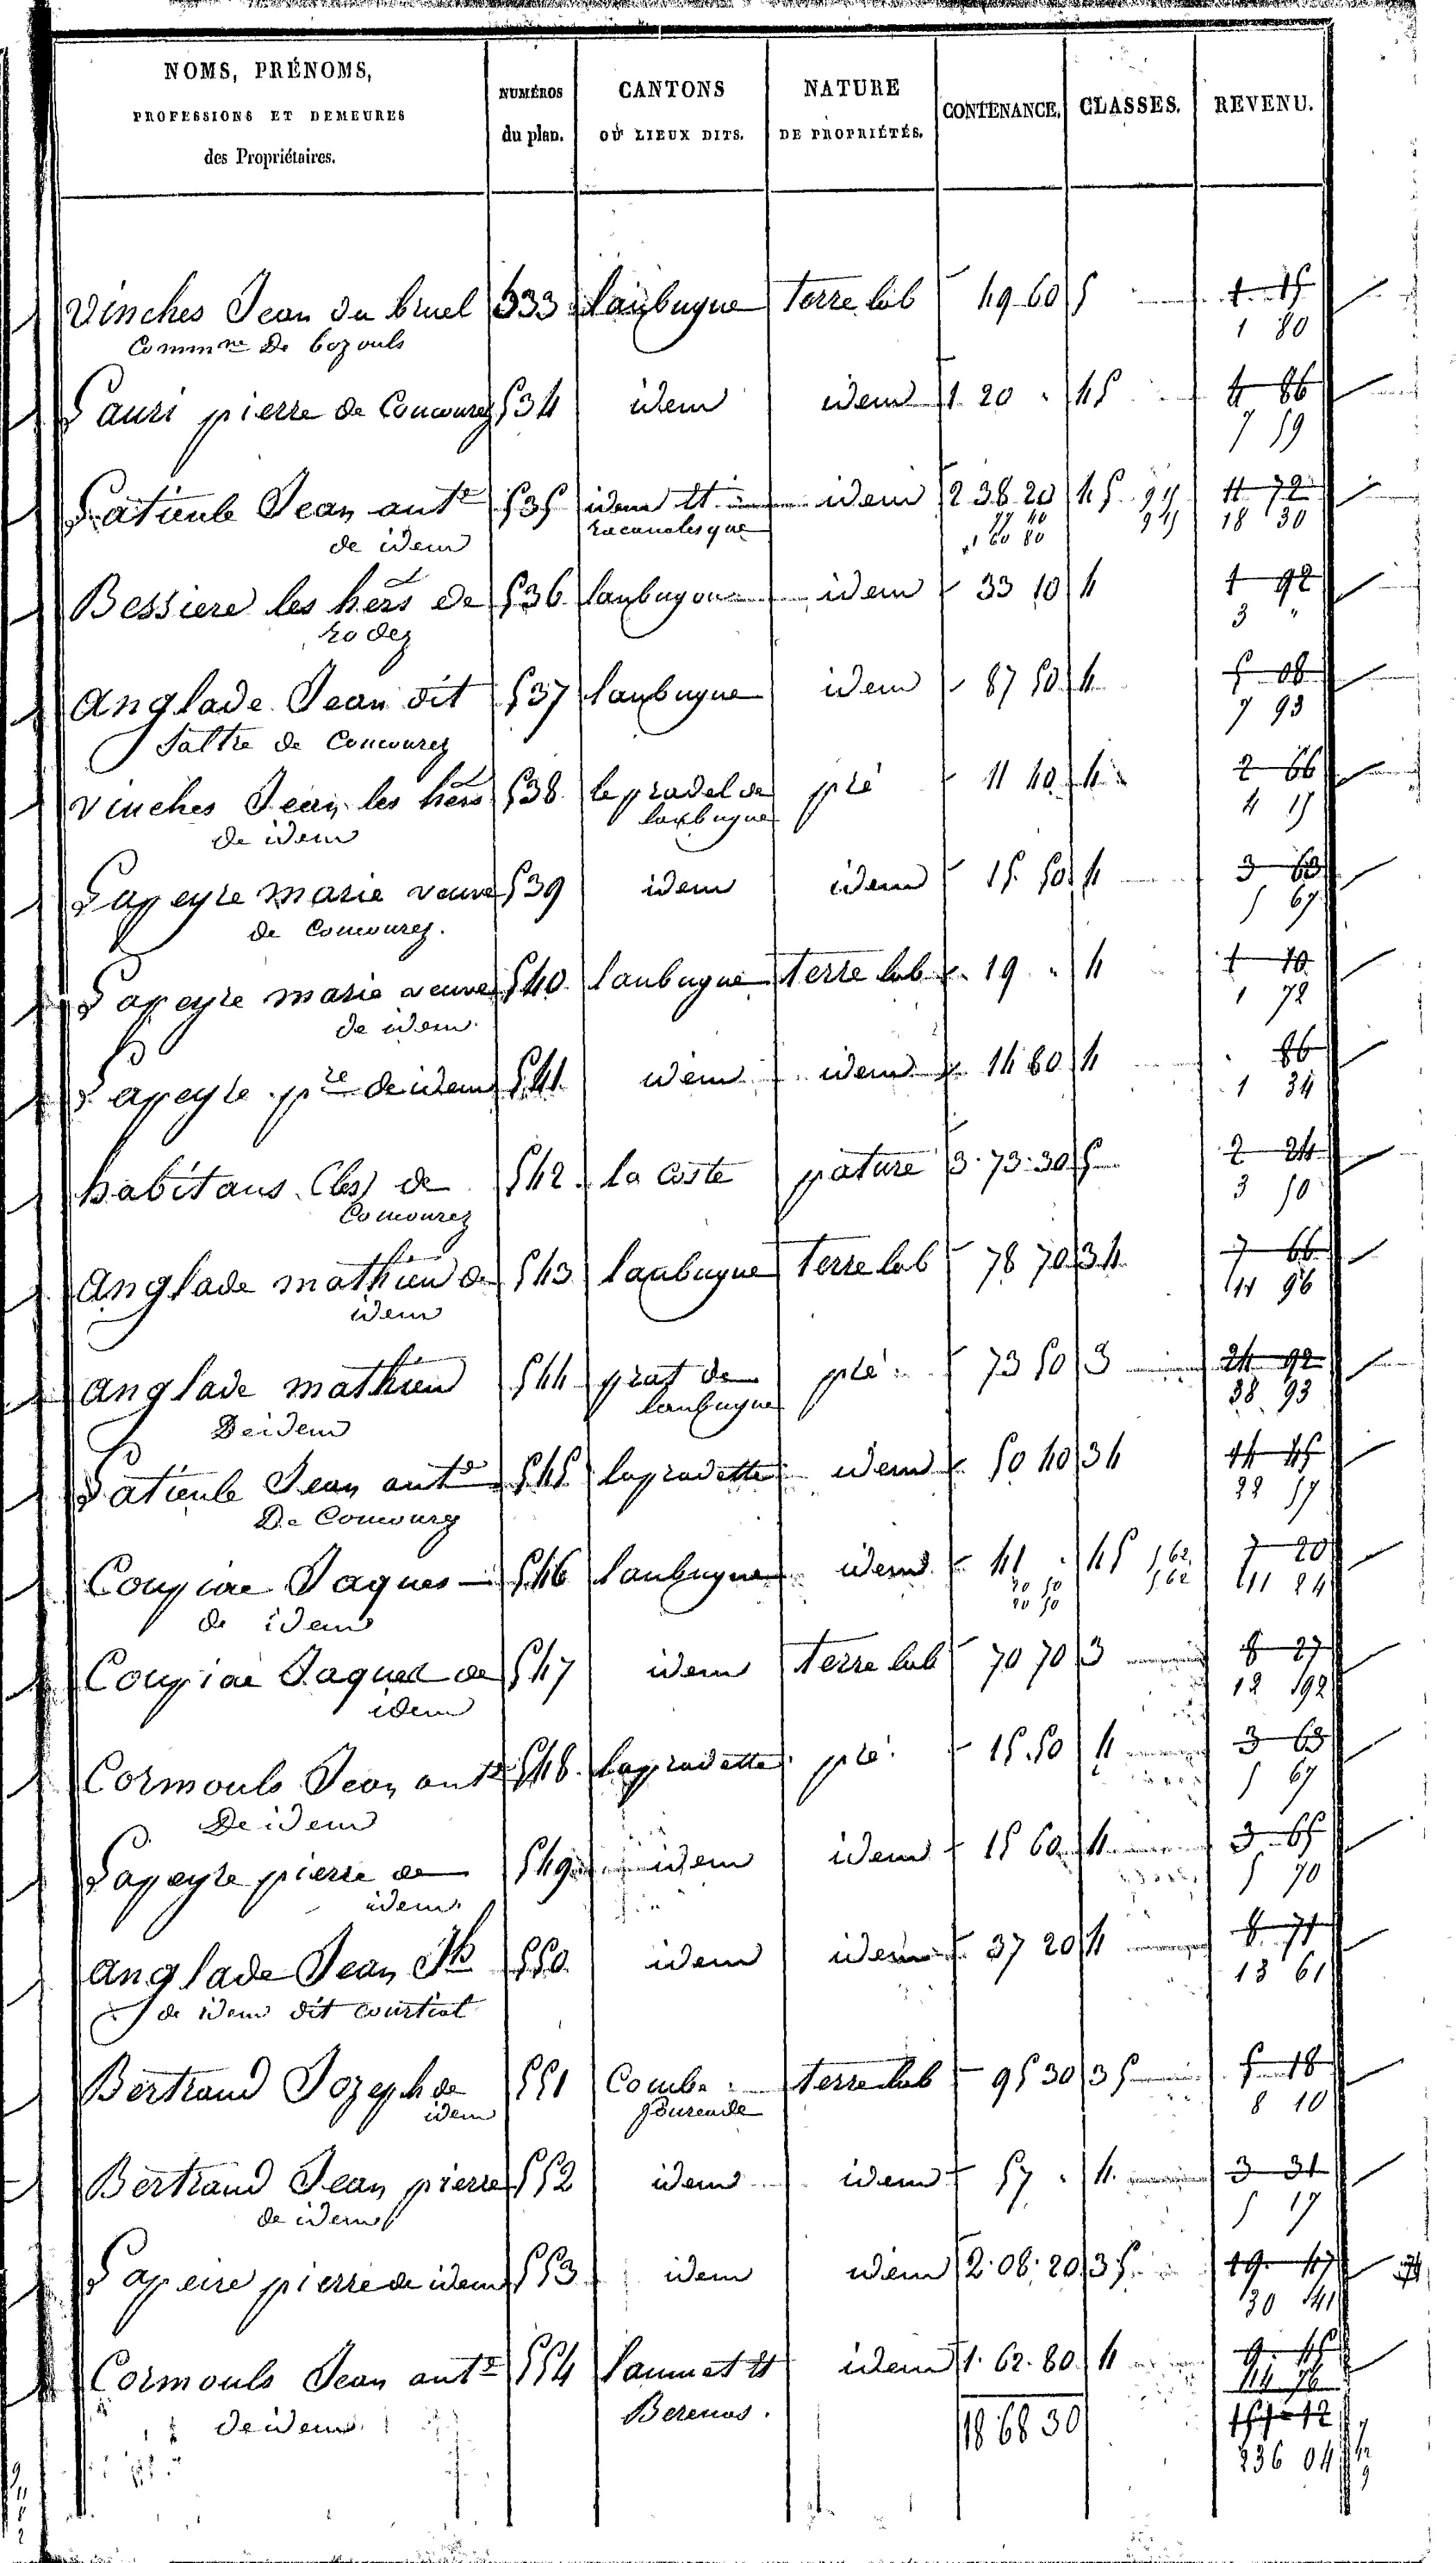 NOMS, PRÉNOMS, PROFESSIONS ET DEMEURES des Propriétaires. NUMÉROS du plan. CANTONS OÙ LIEUX DITS. NATURE DE PROPRIÉTÉS. CONTENANCE. CLASSES. REVENU.
Vinches Jean du bruel 533 laubugue terre lab 49 60 5 1 15
Comm^ne De bozouls 1 80
Lauri pierre de Concourez 534 idem idem 1 20 " 45 4 86
7 59
Latieule Jean ant^e 535 idem et idem 2 38 20 45 11 72
de idem 77 40 18 30
1 60 80
Bessiere les hers de 536 laubugue idem 33 10 4 1 92
rodez 3 "
anglade Jean dit 537 laubugue idem 87 50 4 5 08
Saltre de Concourez 7 93
vinches Jean les hers 538 le pradel de pré 11 40 4 2 66
de idem laubugue 4 15
Lapeyre marie veuve 539 idem idem 15 50 4 3 63
de Concourez. 5 67
Lapeyre marie veuve 540 laubugue terre lab 19 " 4 1 10
de idem 1 72
Lapeyre p^re de idem 541 idem idem 14 80 4 86
1 34
habitans (les) de 542 la coste pature 3 73 30 5 2 24
Concourez 3 50
anglade mathieu de 543 laubugue terre lab 78 70 34 7 66
idem 11 96
anglade mathieu 544 prat de pré 73 50 3 24 92
De idem laubugue 38 93
Latieule Jean ant^e 545 lapradette idem 50 40 34 14 45
De Concourez 22 57
Coupiac Jaques 546 laubugue idem 41 " 45 5 62 7 20
de idem 20 50 5 62 11 24
20 50
Coupiac Jaques de 547 idem terre lab 70 70 3 8 27
idem 12 92
Cormouls Jean ant^e 548 lapradette pré 15 50 4 3 63
De idem 5 67
Lapeyre pierre de 549 idem idem 15 60 4 3 65
idem 5 70
anglade Jean Jh 550 idem idem 37 20 4 8 71
de idem dit courtiol 13 61
Bertrand Jozeph de 551 Combe terre lab 95 30 35 5 18
idem 8 10
Bertrand Jean pierre 552 idem idem 57 " 4 3 31
de idem 5 17
Lapeire pierre de idem 553 idem idem 2 08 20 35 19 47
30 41
Cormouls Jean ant^e 554 et idem 1 62 80 4 9 45
de idem 14 76
18 68 30 151 12
236 04